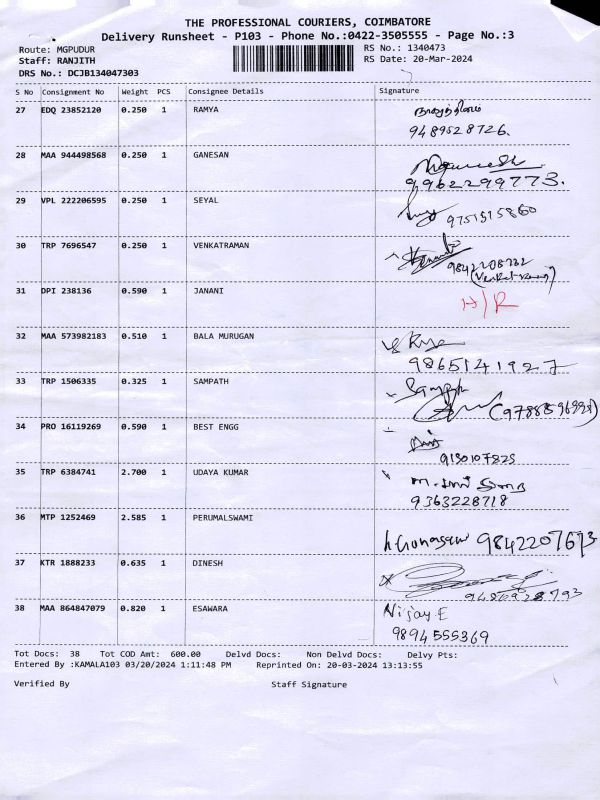 THE PROFESSIONAL COURIERS, COIMBATORE
Delivery Runsheet - P103 - Phone No.:0422-3505555 - Page No.:3
Route: MGPUDUR RS No.: 1340473
Staff: RANJITH RS Date: 20-Mar-2024
DRS No.: DCJB134047303
S No Consignment No Weight PCS Consignee Details Signature
27 EDQ 23852120 0.250 1 RAMYA
9489528726.
28 MAA 944498568 0.250 1 GANESAN
9962299773.
29 VPL 222206595 0.250 1 SEYAL
9751515860
30 TRP 7696547 0.250 1 VENKATRAMAN
31 DPI 238136 0.590 1 JANANI
H/R
32 MAA 573982183 0.510 1 BALA MURUGAN
9865141927
33 TRP 1506335 0.325 1 SAMPATH
Sampath
34 PRO 16119269 0.590 1 BEST ENGG
35 TRP 6384741 2.700 1 UDAYA KUMAR
9363228718
36 MTP 1252469 2.585 1 PERUMALSWAMI
37 KTR 1888233 0.635 1 DINESH
38 MAA 864847079 0.820 1 ESAWARA
9894555369
Tot Docs: 38 Tot COD Amt: 600.00 Delvd Docs: Non Delvd Docs: Delvy Pts:
Entered By :KAMALA103 03/20/2024 1:11:48 PM Reprinted On: 20-03-2024 13:13:55
Verified By Staff Signature